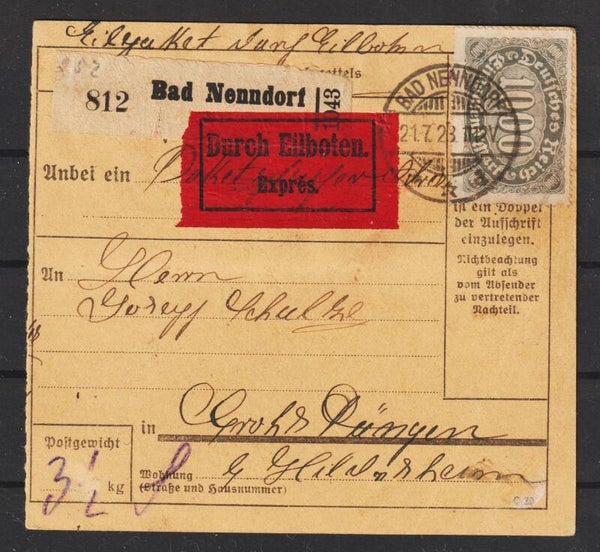 Eilpaket durch Eilboten
812 Bad Nenndorf 1043
Deutsches Reich
1000
BAD NENNDORF
21.7.23
Durch Eilboten.
Exprès.
Anbei ein Paket
ist ein Doppel
der Aufschrift
einzulegen.
Nichtbeachtung
gilt als
vom Absender
zu vertretender
Nachteil.
An Herrn
Joseph Schulze
in Groß Düngen
b/ Hildesheim
Postgewicht
3½ kg
Wohnung
(Straße und Hausnummer)
C 20